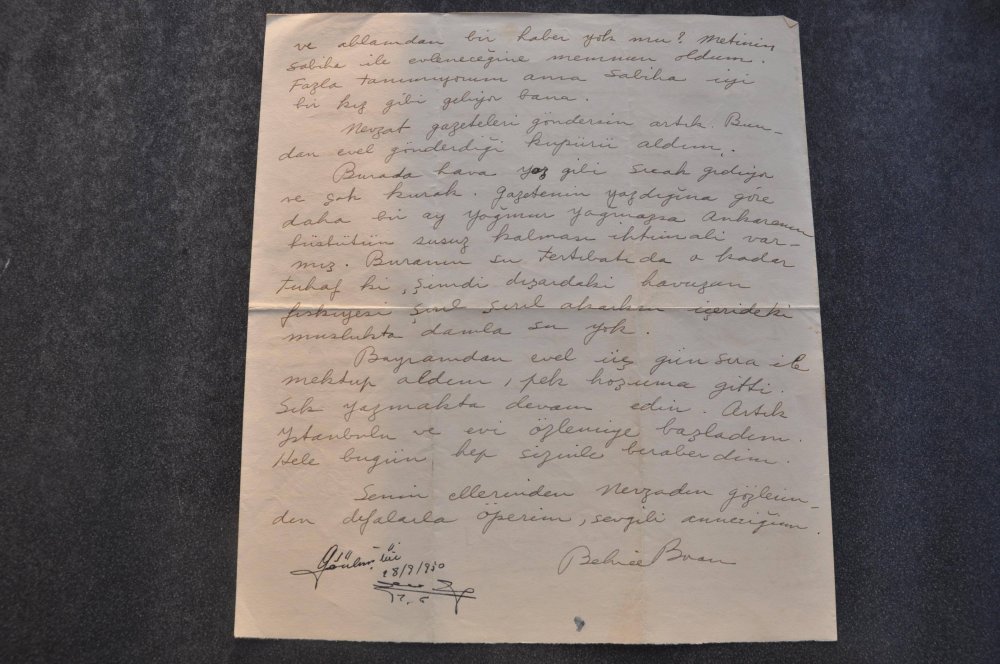 ve ablamdan bir haber yok mu? Metinin
Sabiha ile evleneceğine memnun oldum.
Fazla tanımıyorum ama Sabiha iyi
bir kız gibi geliyor bana.
Nevzat gazeteleri göndersin artık. Bun-
dan evel gönderdiği kupürü aldım.
Burada hava yaz gibi sıcak gidiyor
ve çok kurak. Gazetenin yazdığına göre
daha bir ay yağmur yağmazsa Ankaranın
büsbütün susuz kalması ihtimali var-
mış. Buranın su tertibatı da o kadar
tuhaf ki, şimdi dışardaki havuzun
fıskiyesi şırıl şırıl akarken içerideki
muslukta damla su yok.
Bayramdan evel üç gün sıra ile
mektup aldım, pek hoşuma gitti.
Sık yazmakta devam edin. Artık
Ystanbulu ve evi özlemiye başladım.
Hele bugün hep sizinle beraberdim.
Senin ellerinden Nevzadın gözlerin-
den defalarla öperim, sevgili anneciğim
Behice Boran
Görülmüştür
28/9/950